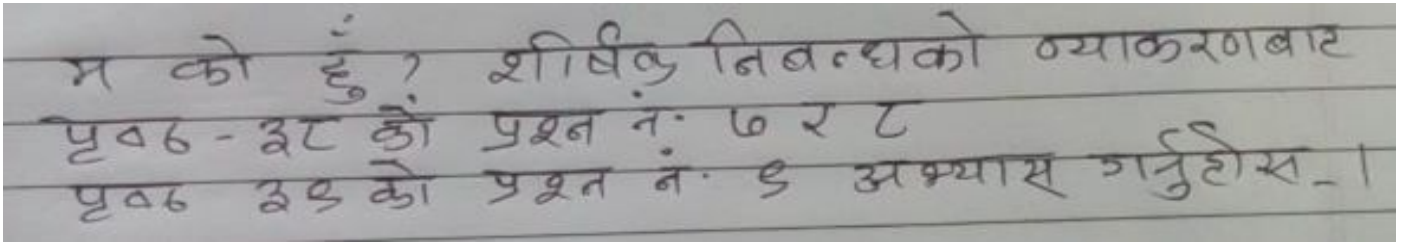 म को हुँ ? शीर्षक निबन्धको व्याकरणबाट
पृष्ठ - ३८ को प्रश्न नं. ७ र ८
पृष्ठ ३९ को प्रश्न नं. ९ अभ्यास गर्नुहोस् ।